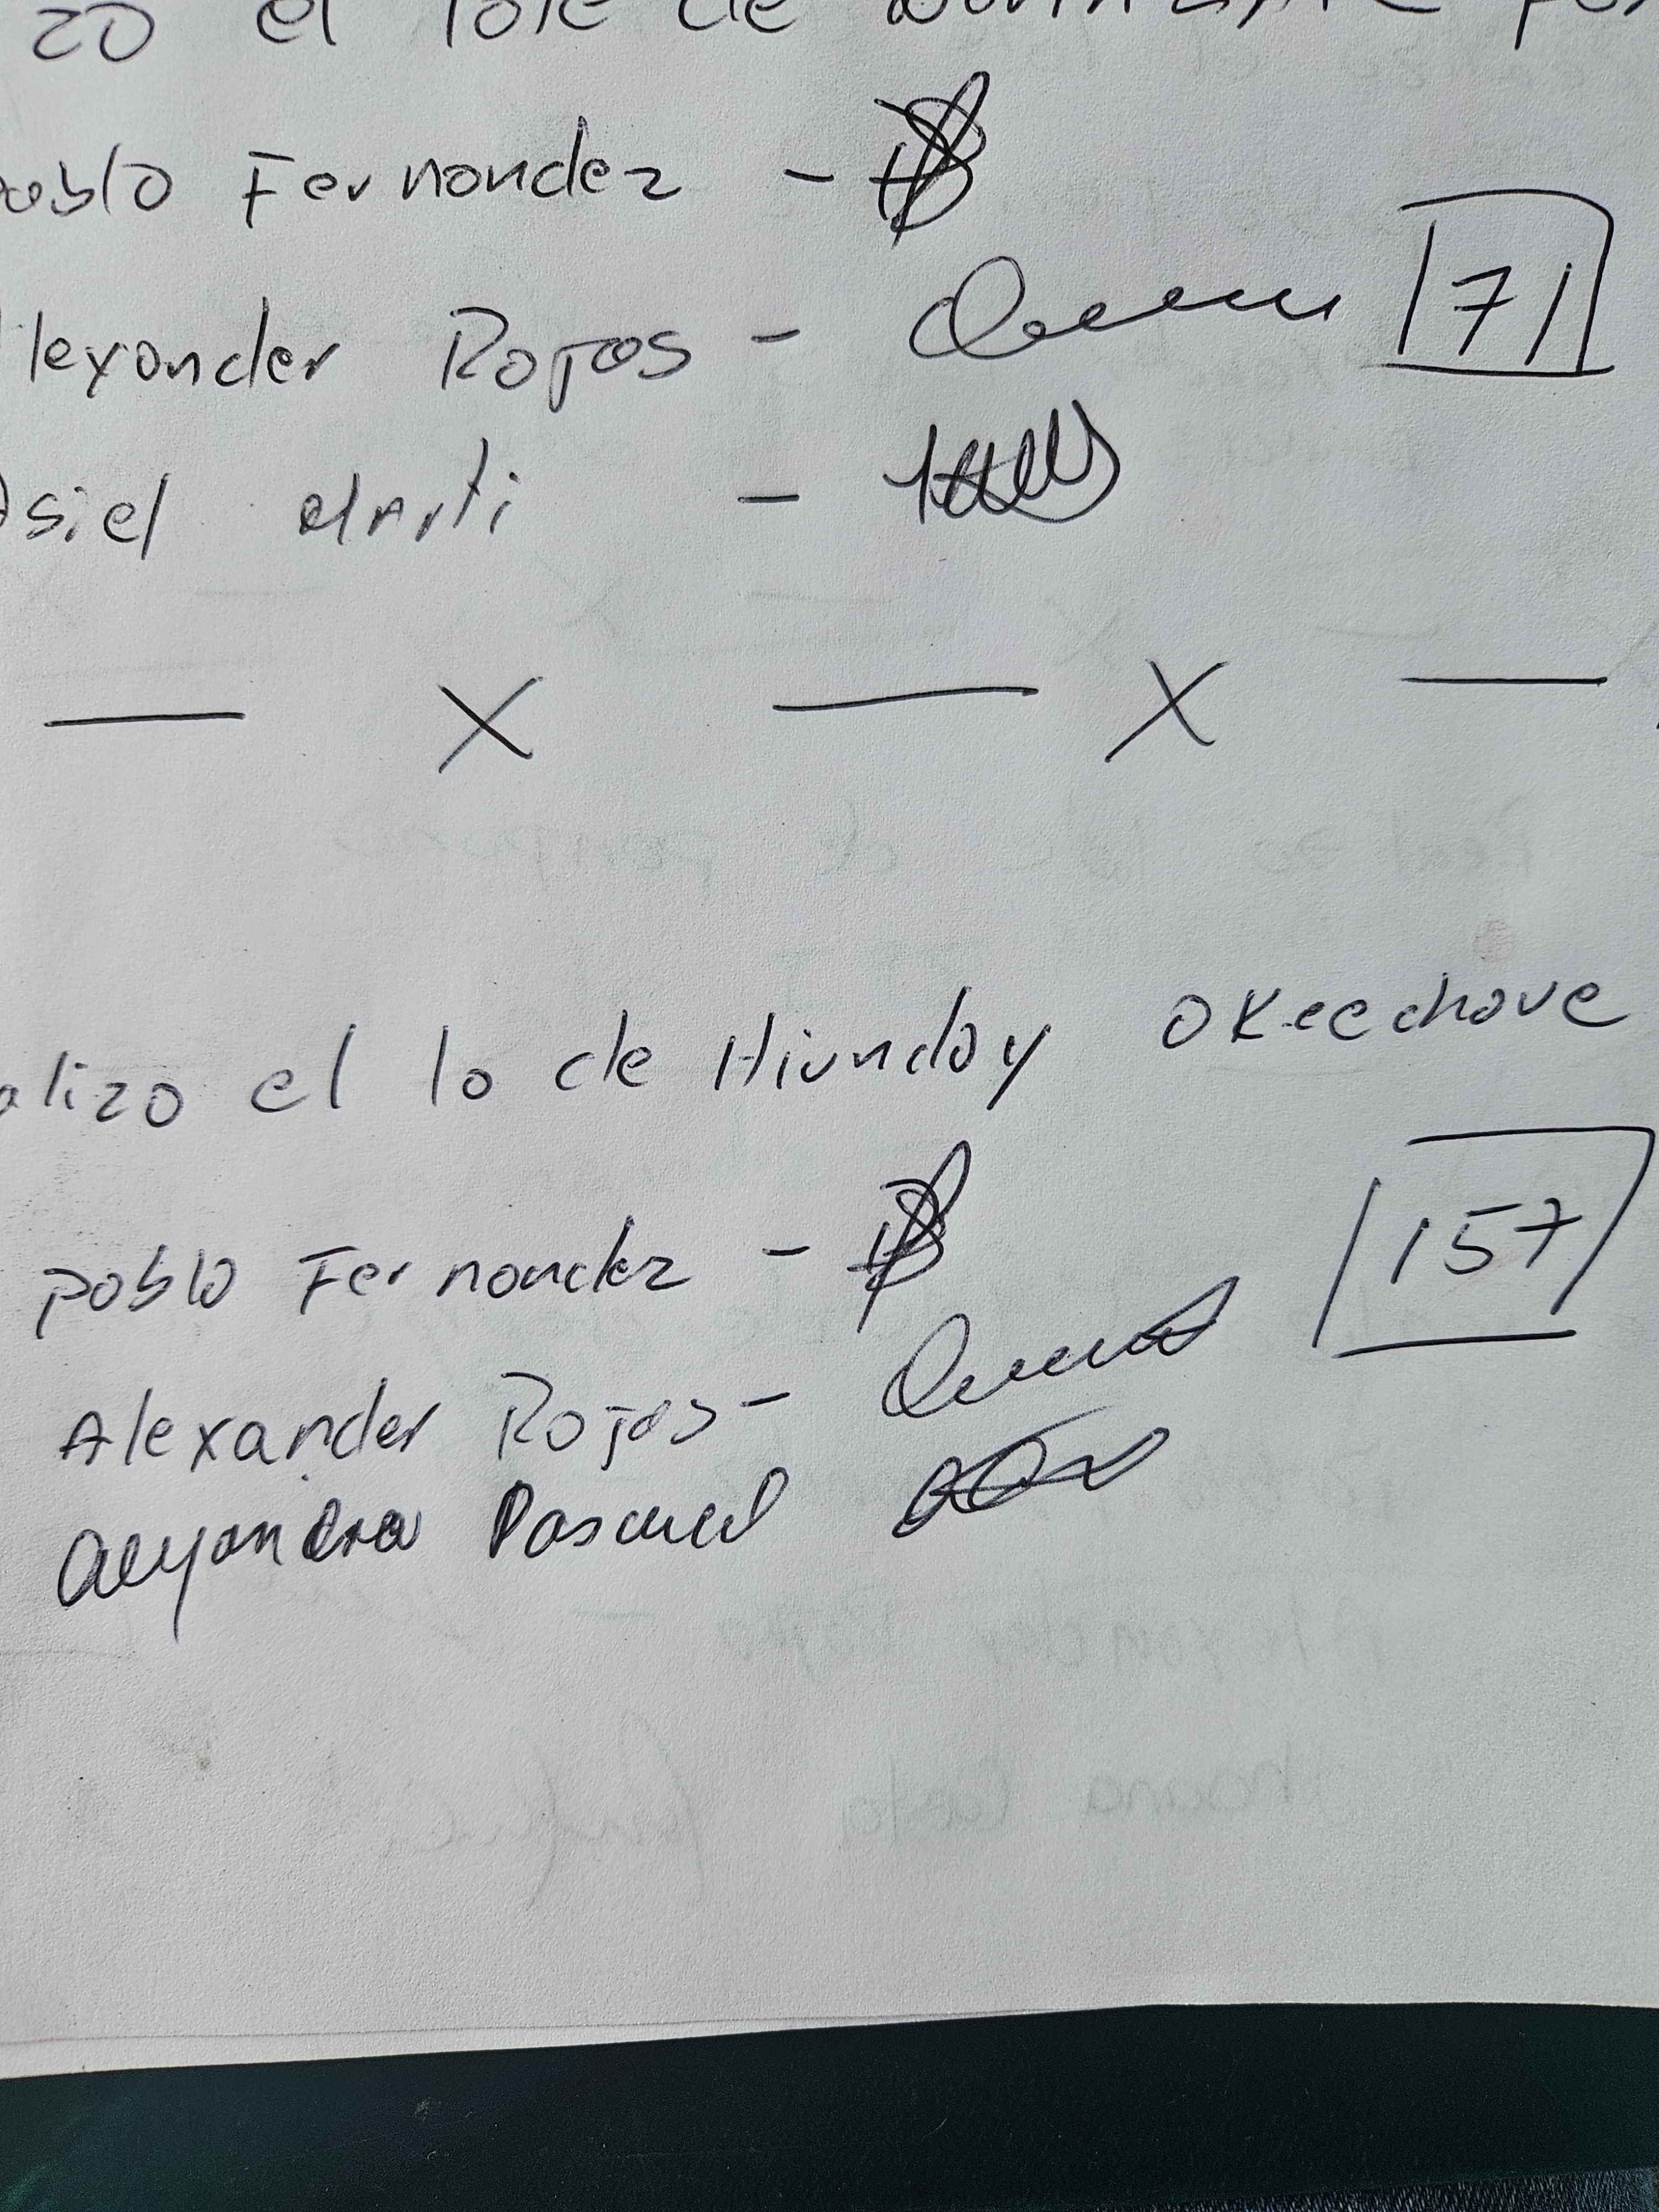 zo el lote de
Pablo Fernandez -
Alexander Rojas - 71
Osiel Marti -
— X — X —
alizo el lo de Hiunday Okeechove
Pablo Fernandez - 157
Alexander Rojas -
Alejandra Pascual